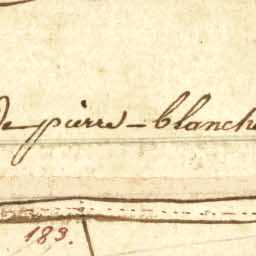 de pierre-blanche
183.